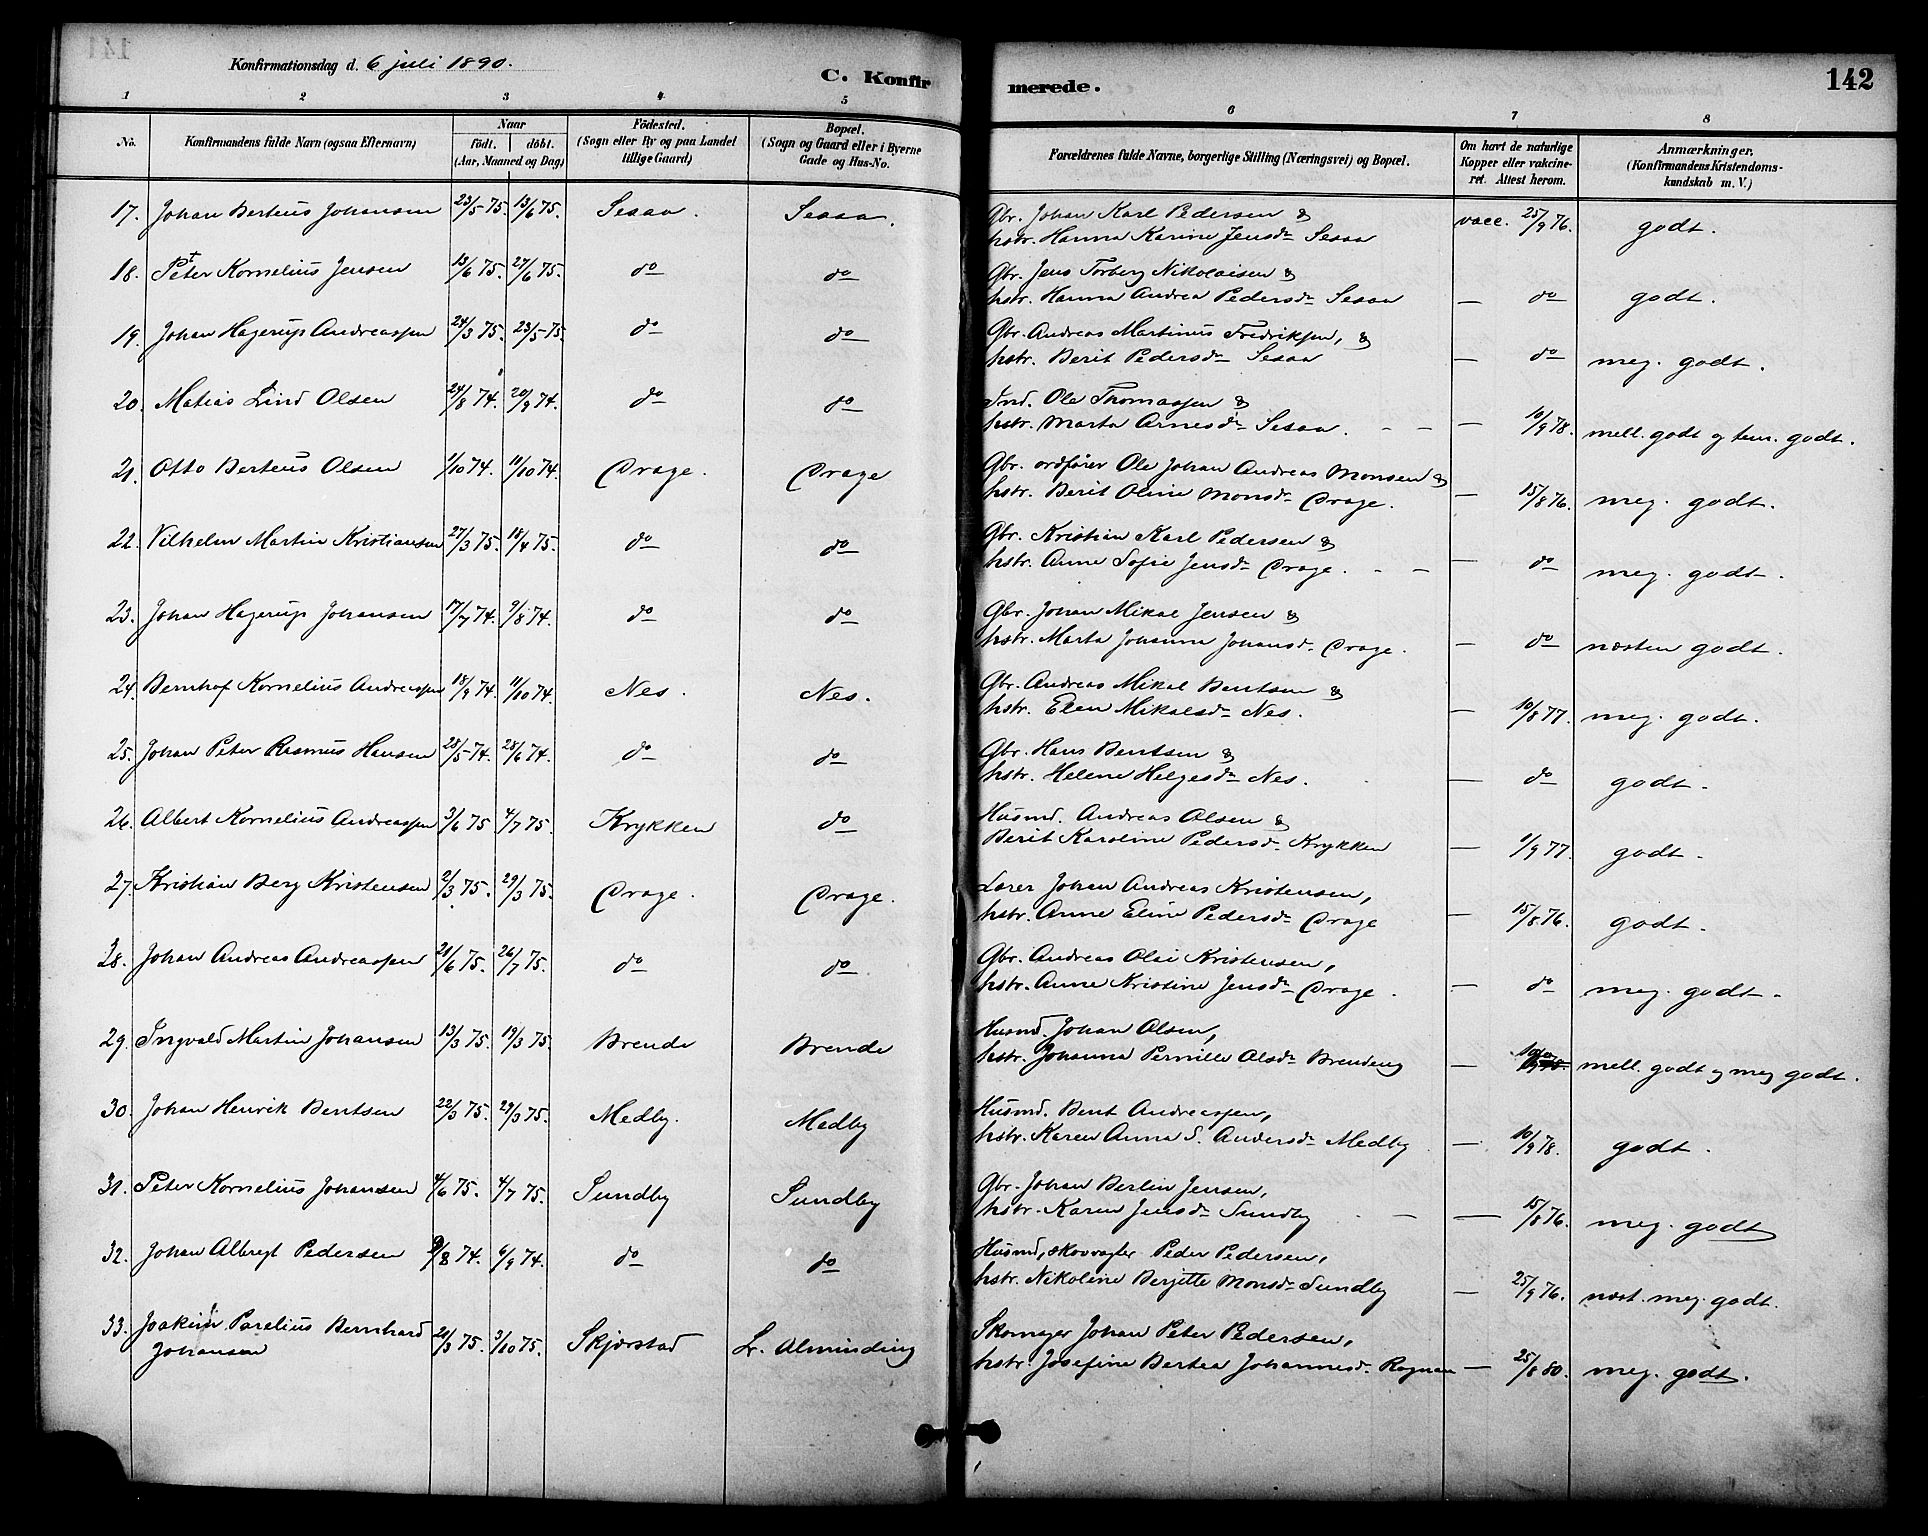 Konfirmationsdag d. 6 juli 1890.
C. Konfirmerede.
142
1 2 3 4 5 6 7 8
No.
Konfirmandens fulde Navn (ogsaa Efternavn)
Naar
födt. döbt.
(Aar, Maaned og Dag)
Födested.
(Sogn eller By og paa Landet
tillige Gaard)
Bopæl.
(Sogn og Gaard eller i Byerne
Gade og Hus-No.
Forældrenes fulde Navne, borgerlige Stilling (Næringsvei) og Bopæl.
Om havt de naturlige
Kopper eller vakcine-
ret. Attest herom.
Anmærkninger.
(Konfirmandens Kristendoms-
kundskab m. V.)
17. Johan Berteus Johansen 23/5 75. 13/6 75. Sesaa. Sesaa. Gbr. Johan Karl Pedersen &
hstr. Hanna Karine Jensdr Sesaa vacc. 25/9 76. godt.
18. Peter Kornelius Jensen 13/6 75. 27/6 75. do do Gbr. Jens Torberg Nikolaisen &
hstr. Hanna Andrea Pedersdr Sesaa — do godt.
19. Johan Hagerup Andreassen 24/3 75. 23/5 75. do do Gbr. Andreas Martinus Fredriksen, &
hstr. Berit Pedersdr Sesaa — do meg. godt.
20. Matias Lind Olsen 24/8 74. 20/9 74. do do Ind. Ole Thomassen &
hstr. Marta Arnesdr Sesaa. — 10/9 78. mell. godt og tem. godt.
21. Otto Berteus Olsen 1/10 74. 11/10 74. Drage. Drage Gbr. ordfører Ole Johan Andreas Monsen &
hstr. Berit Oline Monsdr Drage. — 15/8 76. meg. godt.
22. Vilhelm Martin Kristiansen 27/3 75. 18/4 75. do do Gbr. Kristian Karl Pedersen &
hstr. Anne Sofie Jensdr Drage. — do meg. godt.
23. Johan Hagerup Johansen 17/7 74. 9/8 74. do do Gbr. Johan Mikal Jensen &
hstr. Marta Johanna Johansdr. Drage. — do næsten godt.
24. Bernhof Kornelius Andreassen 18/9 74. 11/10 74. Nes. Nes. Gbr. Andreas Mikal Bentsen &
hstr. Elen Mikalsdr Nes. — 10/8 77. meg. godt.
25. Johan Peter Rasmus Hansen 28/5 74. 28/6 74. do do Gbr. Hans Bentsen &
hstr. Helene Helgesdr Nes. — do godt.
26. Albert Kornelius Andreassen 3/6 75 4/7 75. Krykken do Husmd. Andreas Olsen &
Berit Karoline Pedersdr Krykken — 1/9 77. godt.
27. Kristian Berg Kristensen 2/3 75. 29/3 75. Drage. Drage. Lærer Johan Andreas Kristensen,
hstr. Anne Eline Pedersdr Drage — 15/8 76. godt.
28. Johan Andreas Andreassen 21/6 75. 26/7 75. do do Gbr. Andreas Olai Kristensen,
hstr. Anne Kristine Jensdr Drage. — do meg. godt.
29. Ingvald Martin Johansen 13/3 75. 19/3 75. Brende Brende Husmd. Johan Olsen,
hstr. Johanna Pernille Olsdr Brendeng — mell. godt og meg godt.
30. Johan Henrik Bentsen 22/3 75. 29/3 75. Medby. Medby Husmd. Bent Andreassen,
hstr. Karen Anna S. Andersdr Medby. — 10/9 78. godt.
31. Peter Kornelius Johansen 4/6 75. 4/7 75. Sundby Sundby Gbr. Johan Berlin Jensen,
hstr. Karen Jensdr Sundby — 15/8 76. meg. godt
32. Johan Albregt Pedersen 9/8 74. 6/9 74. do do Husmd, skovvagter Peder Pedersen,
hstr. Nikoline Bergitte Monsdr Sundby — 25/9 76. næst. meg. godt.
33. Joakim Parelius Bernhard
Johansen 21/3 75. 3/10 75. Skjærstad Lr. Alminding Skomager Johan Peter Pedersen,
hstr. Josefine Bertea Johannesdr. Rognan — 25/8 80. meg. godt.